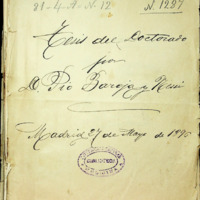 21-4-A-N.12 N. 1297
Tesis del Doctorado
por
D. Pío Baroja y Nessi
Madrid 27 de Mayo de 1896
MEDICINA